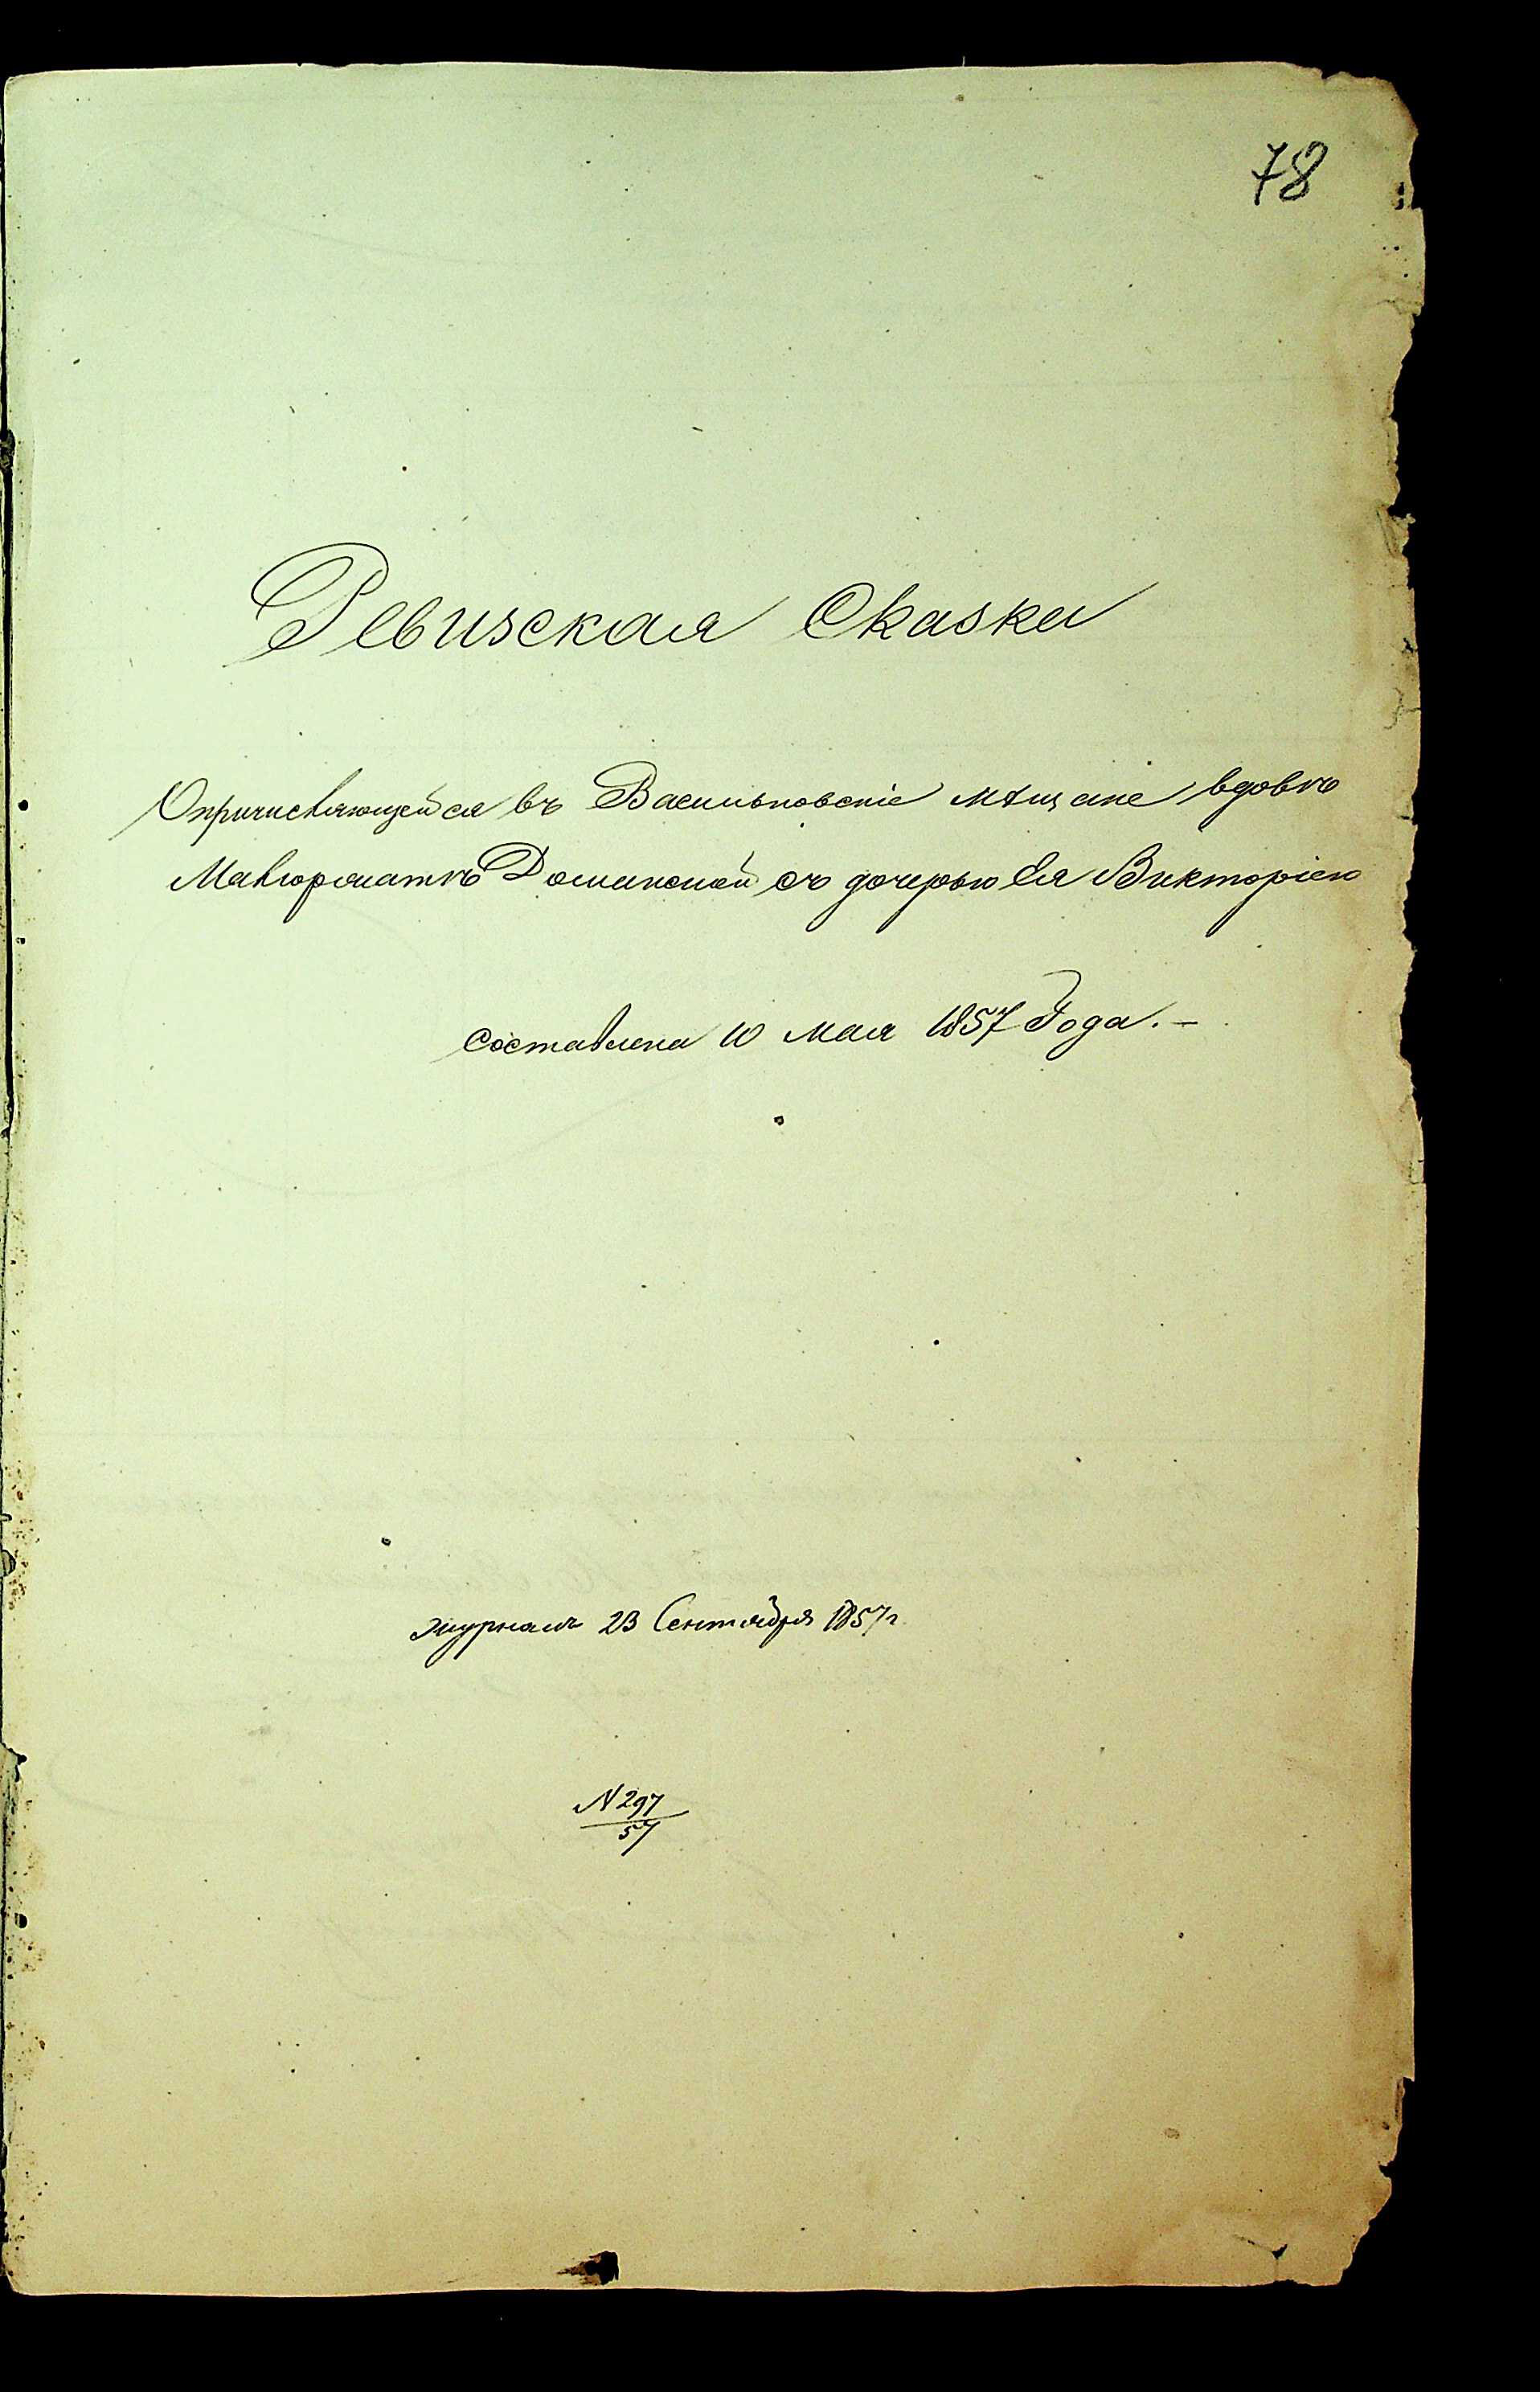 78
Ревизская Сказка
О причисляющейся въ Васильковскіе мѣщане вдовѣ
Маіоршаткѣ Доманской съ дочерью Ея Викторіею
Составлена 10 Мая 1857 Года. —
Журналъ 23 Сентября 1857 г.
N 297
57